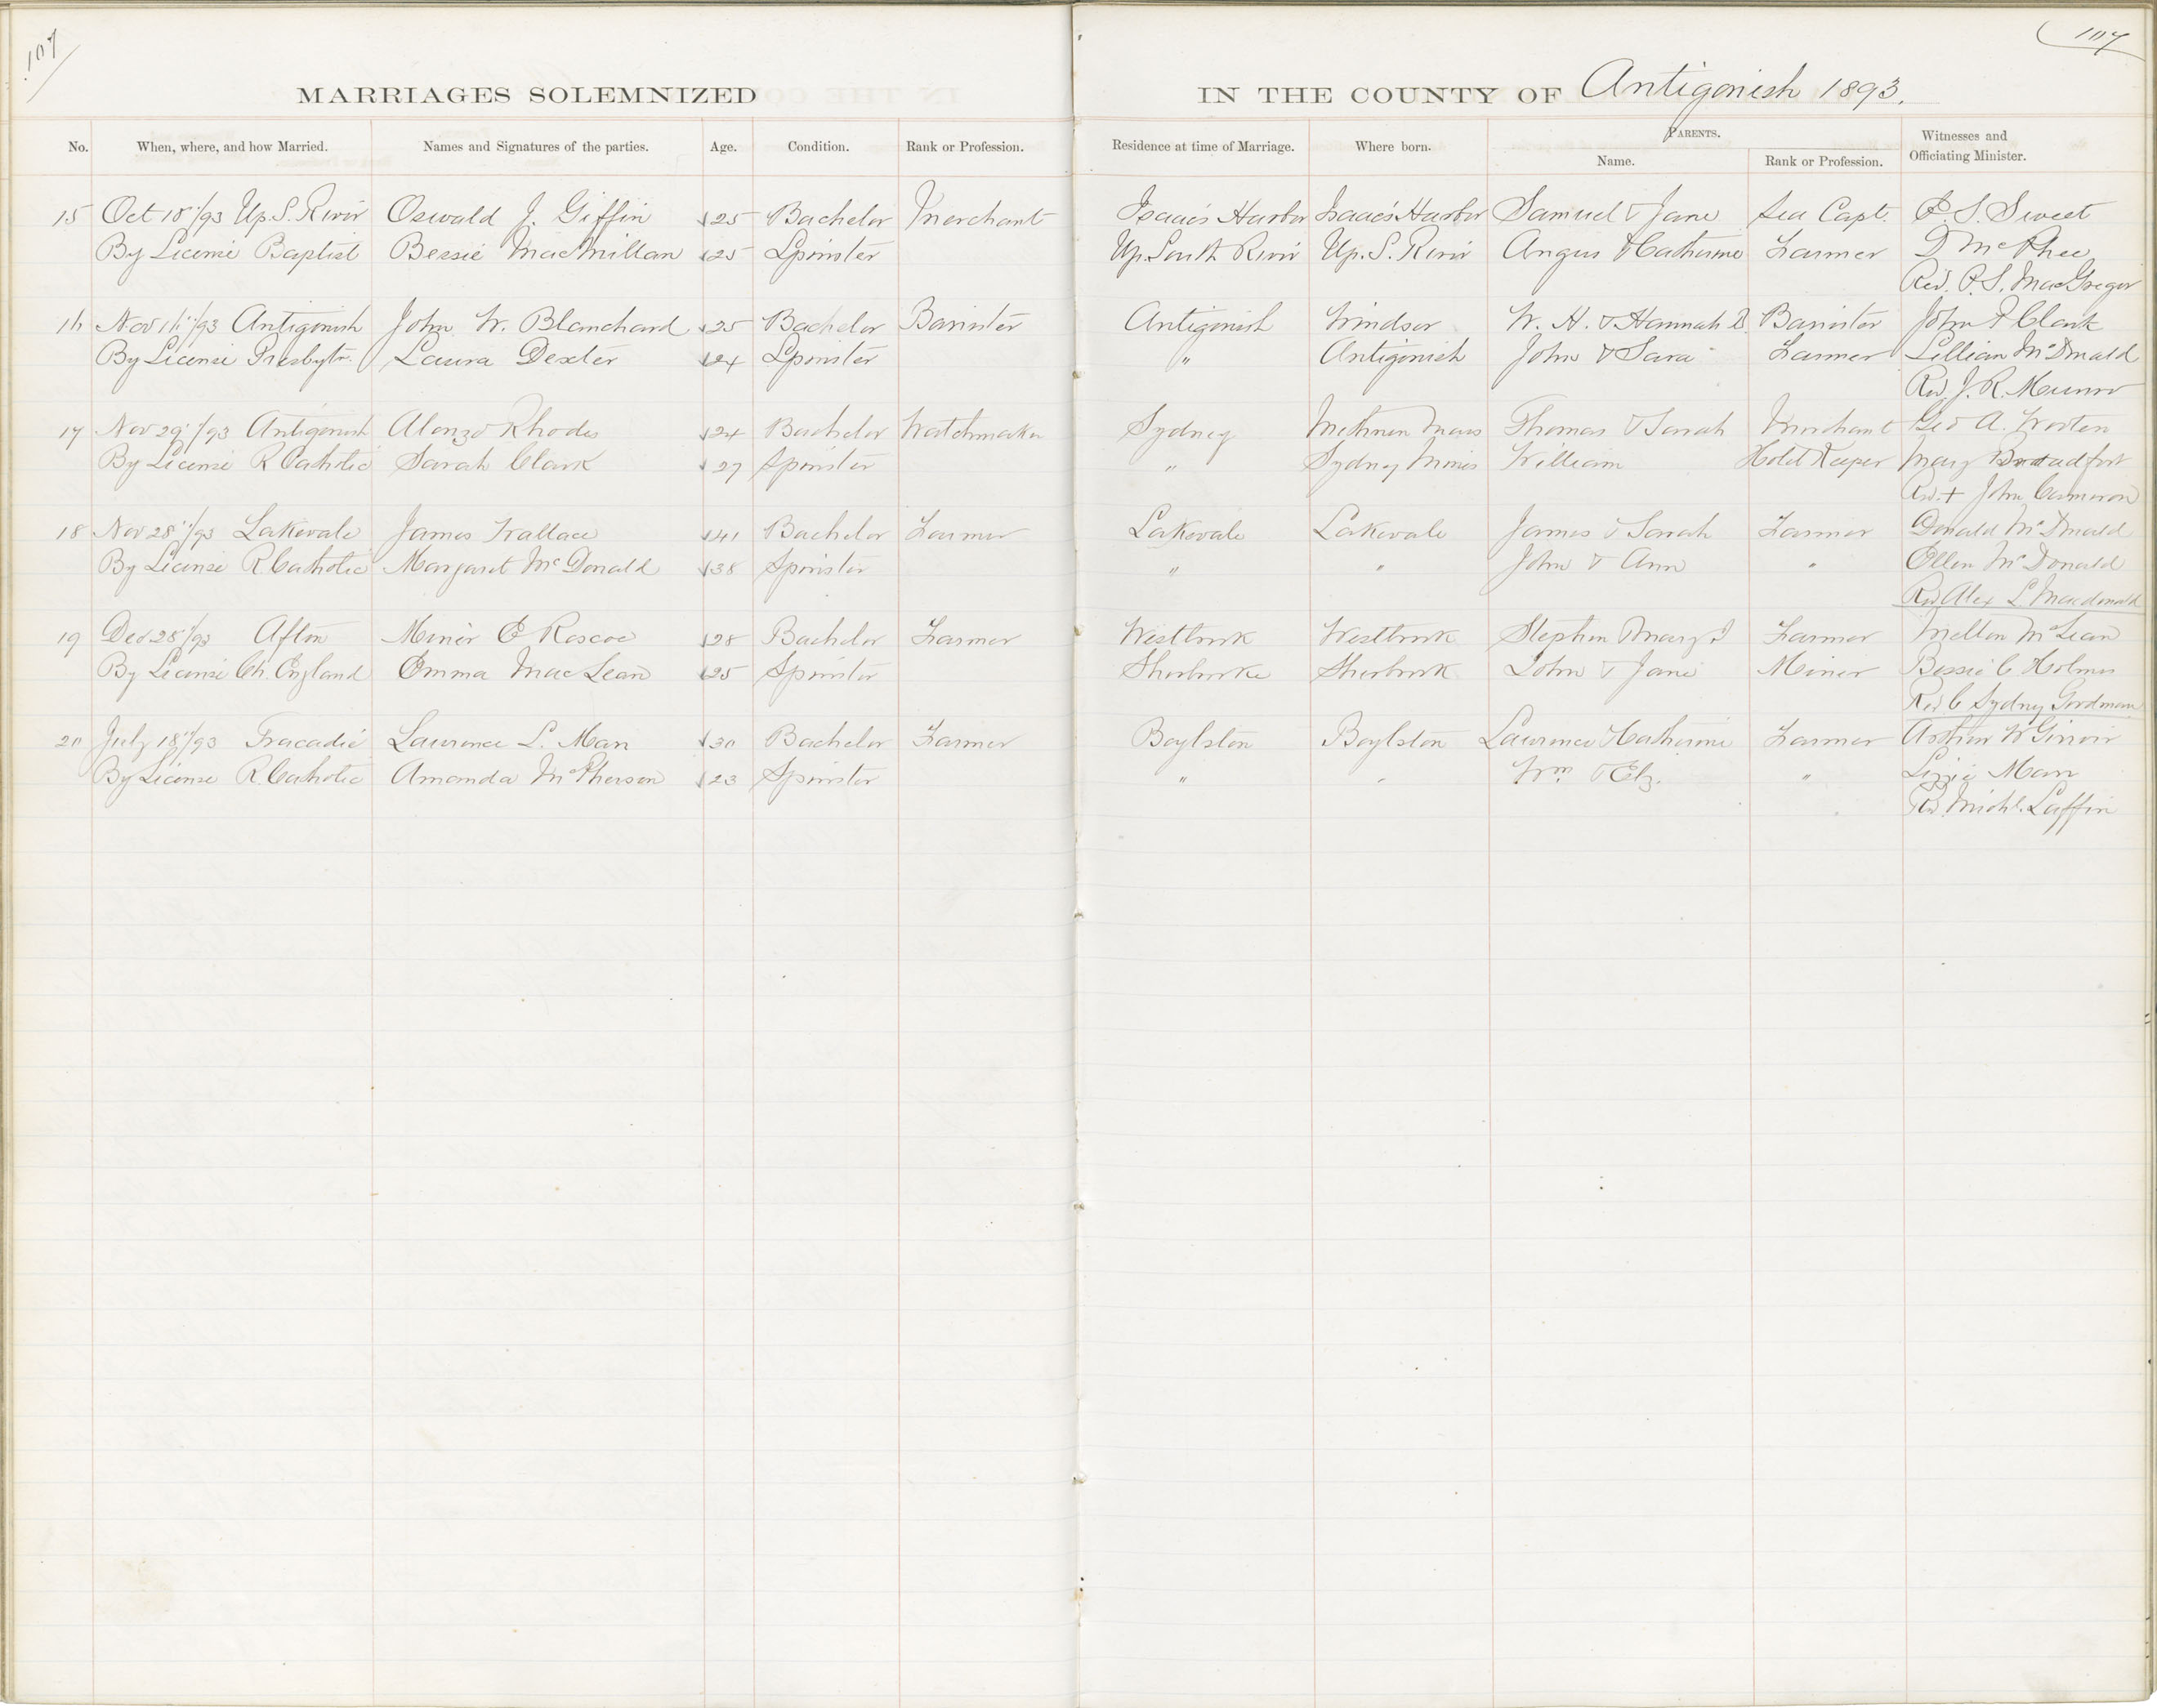 107
107
MARRIAGES SOLEMNIZED IN THE COUNTY OF Antigonish 1893.
No. When, where, and how Married. Names and Signatures of the parties. Age. Condition. Rank or Profession. Residence at time of Marriage. Where born. PARENTS. Name. Rank or Profession. Witnesses and Officiating Minister.
15 Oct 18"/93 Up. S. River Oswald J. Giffin 25 Bachelor Merchant Isaac's Harbor Isaac's Harbor Samuel & Jane Sea Capt. S. Sweet
By License Baptist Bessie MacMillan 25 Spinster Up. South River Up. S. River Angus & Catherine Farmer D McPhee
Rev. P. S. MacGregor
16 Nov 16"/93 Antigonish John W. Blanchard 25 Bachelor Barrister Antigonish Windsor W. H. & Hannah Barrister John Clark
By License Presbytn. Laura Dexter 24 Spinster " Antigonish John & Sara Farmer Lillian McDonald
Rev J. R. Munro
17 Nov 29"/93 Antigonish Alonzo Rhodes 24 Bachelor Watchmaker Sydney Methuen Mass Thomas & Sarah Merchant Geo A. Wooten
By License R Catholic Sarah Clark 27 Spinster " Sydney Mines William Hotel Keeper Mary
Rev. + John Cameron
18 Nov 28"/93 Lakevale James Wallace 41 Bachelor Farmer Lakevale Lakevale James & Sarah Farmer Donald McDonald
By License R. Catholic Margaret McDonald 38 Spinster " " John & Ann " Ellen McDonald
Rev Alex L. Macdonald
19 Dec 28"/93 Afton Miner E Roscoe 28 Bachelor Farmer Westbrook Westbrook Stephen & Mary J Farmer Melton McLean
By License Ch. England Emma MacLean 25 Spinster Sherbrooke Sherbrook John & Jane Miner Bessie C Holmes
Rev C Sydney Goodman
20 July 18"/93 Tracadie Laurence L. Marr 30 Bachelor Farmer Boylston Boylston Laurence & Catherine Farmer W Girroir
By License R. Catholic Amanda McPherson 23 Spinster " " Wm & Elz. " Lizzie Marr
Rev. Michl. Laffin